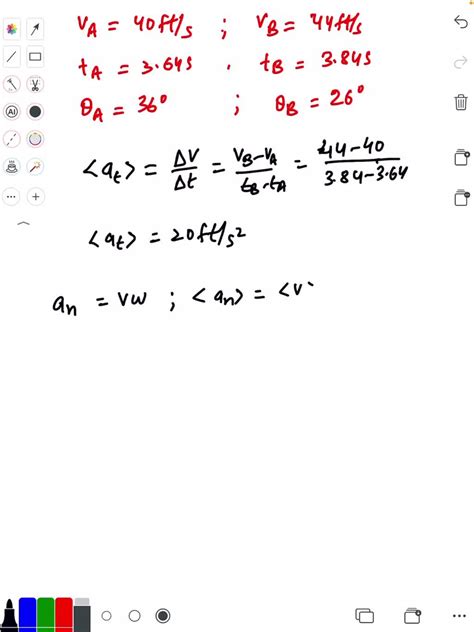 v_A = 40ft/s ; v_B = 44ft/s
t_A = 3.64s . t_B = 3.84s
θ_A = 36° ; θ_B = 26°
<a_t> = Δv/Δt = (v_B-v_A)/(t_B-t_A) = (44-40)/(3.84-3.64)
<a_t> = 20ft/s²
a_n = vω ; <a_n> = <v>
AI